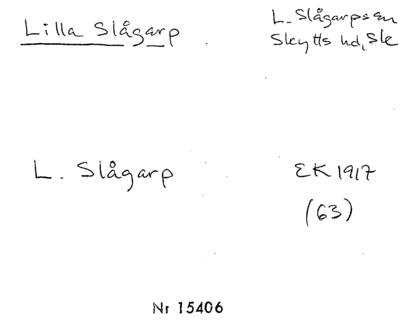 Lilla Slågarp
L. Slågarps sn
Skytts hd, Sk
L. Slågarp
EK 1917
(63)
Nr 15406